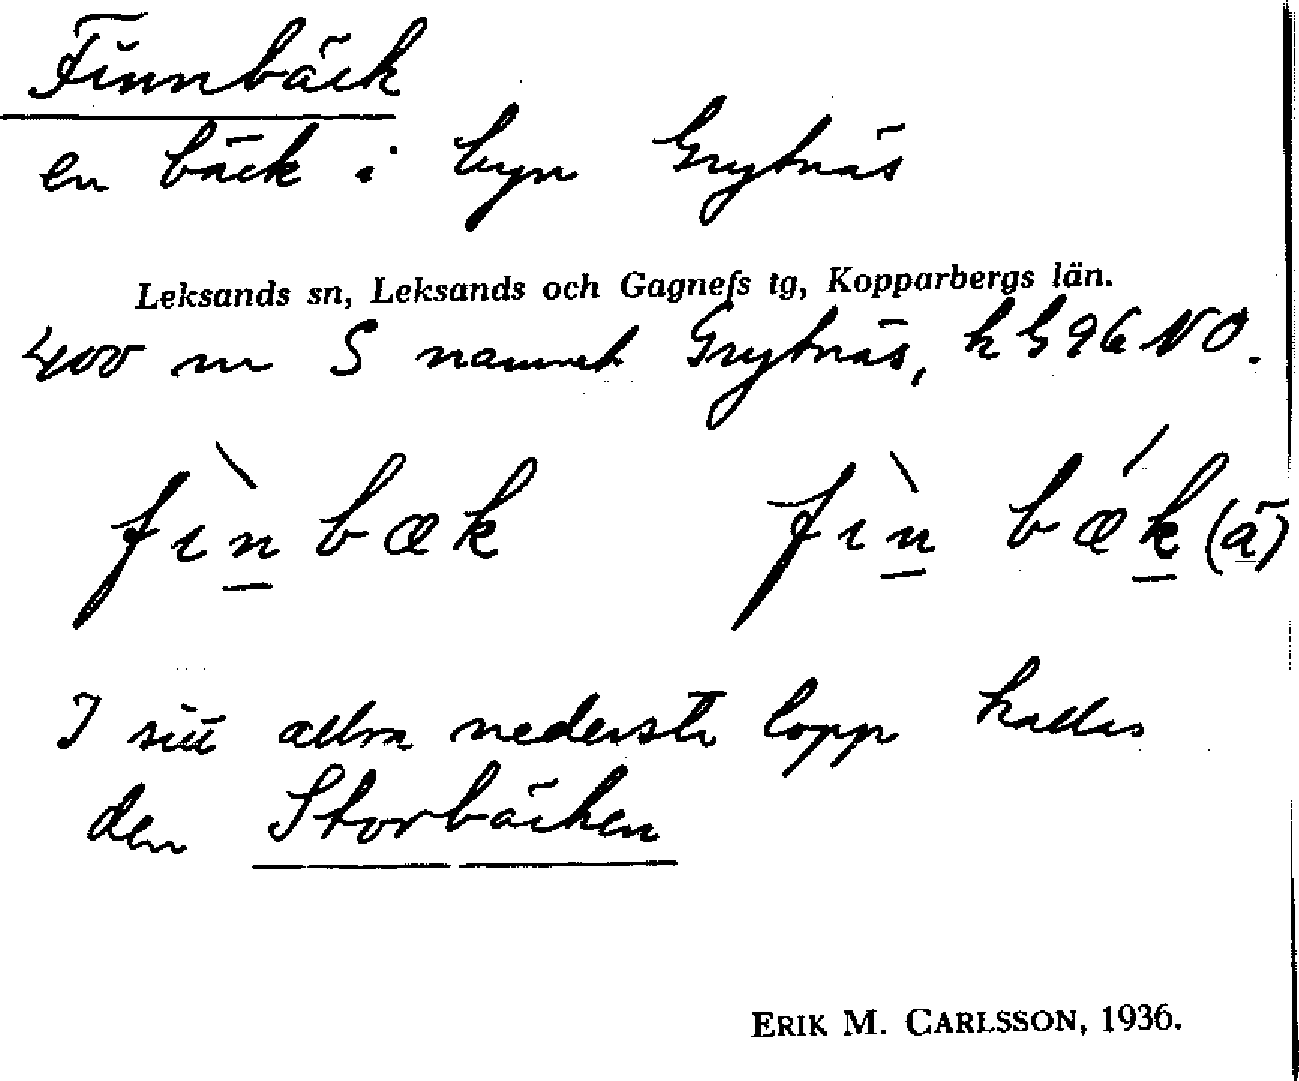 Finnbäck
en bäck i byn Grytnäs
Leksands sn, Leksands och Gagnefs tg, Kopparbergs län.
400 m S namnet Grytnäs, k G 96 NO.
fìn̲bæk fìn̲ bǽk̲ (ä)
I sitt allra nedersta lopp kallas
den Storbäcken
ERIK M. CARLSSON, 1936.